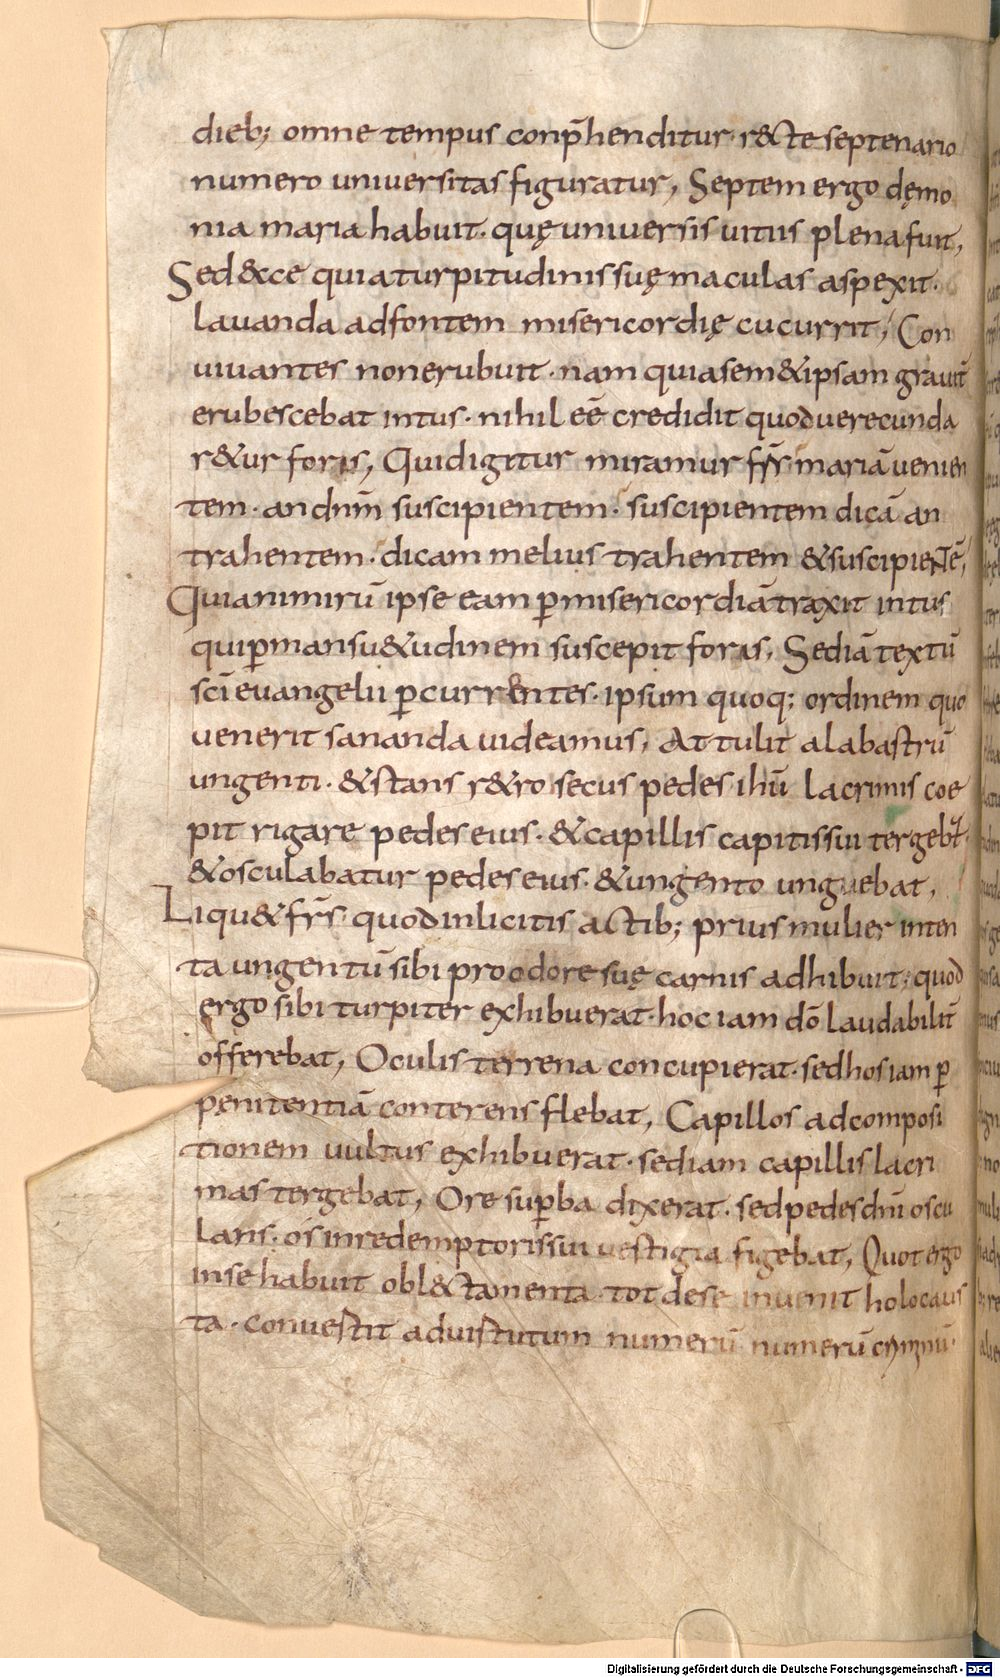 dieb; omne tempus conp̄henditur· r&cte septenario
numero uniuersitas figuratur, Septem ergo dęmo
nia maria habuit· quę uniuersis uitiis plena fuit,
Sed &cce quia turpitudinis suę maculas aspexit·
lauanda ad fontem misericordię cucurrit, Con
uiuantes non erubuit· nam quia sem&ipsam grauit̄
erubescebat intus· nihil eē credidit quod uerecunda
r&ur foris, Quid igitur miramur fr̄s mariā uenien
tem· an dn̄m suscipientem· suscipientem dicā an
trahentem· dicam melius trahentem & suscipientē,
Quia nimirū ipse eam p̄ misericordiā traxit intus
qui p̄ mansu&udinem suscepit foris, Sed iā textū
sc̄i euangelii p̄currentes· ipsum quoq; ordinem quo
uenerit sananda uideamus, Attulit alabastrū
ungenti· & stans r&ro secus pedes ih̄u lacrimis coe
pit rigare pedes eius· & capillis capitis sui tergeb̄t·
& osculabatur pedes eius· & ungento unguebat,
Liqu& fr̄s· quod inlicitis actib; prius mulier inten
ta ungentū sibi pro odore suę carnis adhibuit, quod
ergo sibi turpiter exhibuerat· hoc iam dō laudabilit̄
offerebat, Oculis terrena concupierat· sed hos iam p̄
penitentiā conterens flebat, Capillos ad composi
tionem uultus exhibuerat· sed iam capillis lacri
mas tergebat, Ore sup̄ba dixerat· sed pedes dn̄i oscu
lans· os in redemptoris sui uestigia figebat, Quot ergo
in se habuit obl&ctamenta· tot de se inuenit holocaus
ta· conuertit ad uirtutum numerū numerū crimīnū·
Digitalisierung gefördert durch die Deutsche Forschungsgemeinschaft - DFG